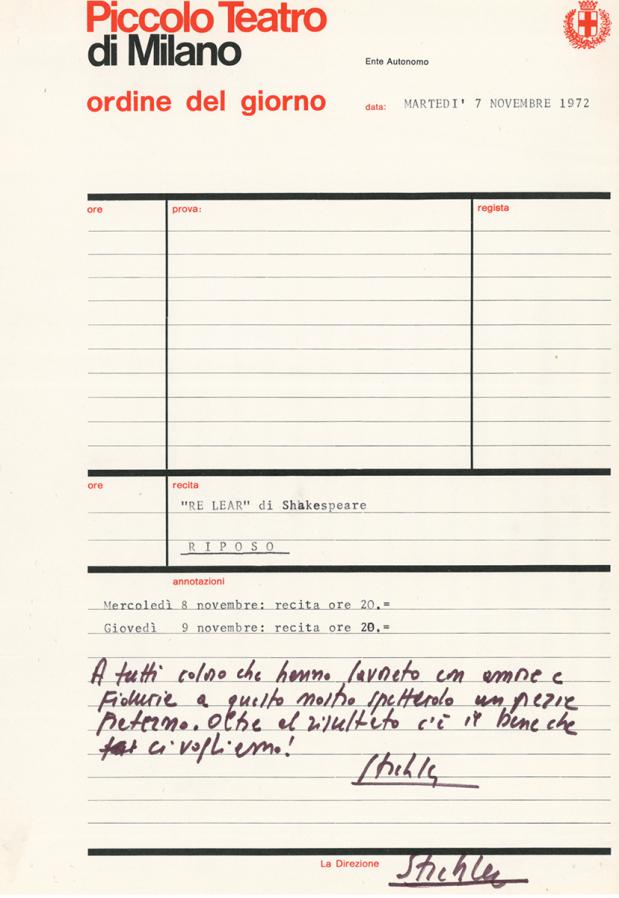 Piccolo Teatro
di Milano
Ente Autonomo
ordine del giorno
data: MARTEDI' 7 NOVEMBRE 1972
ore prova: regista
ore recita
"RE LEAR" di Shakespeare
R I P O S O
annotazioni
Mercoledì 8 novembre: recita ore 20.=
Giovedì 9 novembre: recita ore 20.=
A tutti coloro che hanno lavorato con amore e
fiducia a questo nostro spettacolo un grazie
fraterno. Oltre al risultato c'è il bene che
ci vogliamo!
Strehler
La Direzione Strehler